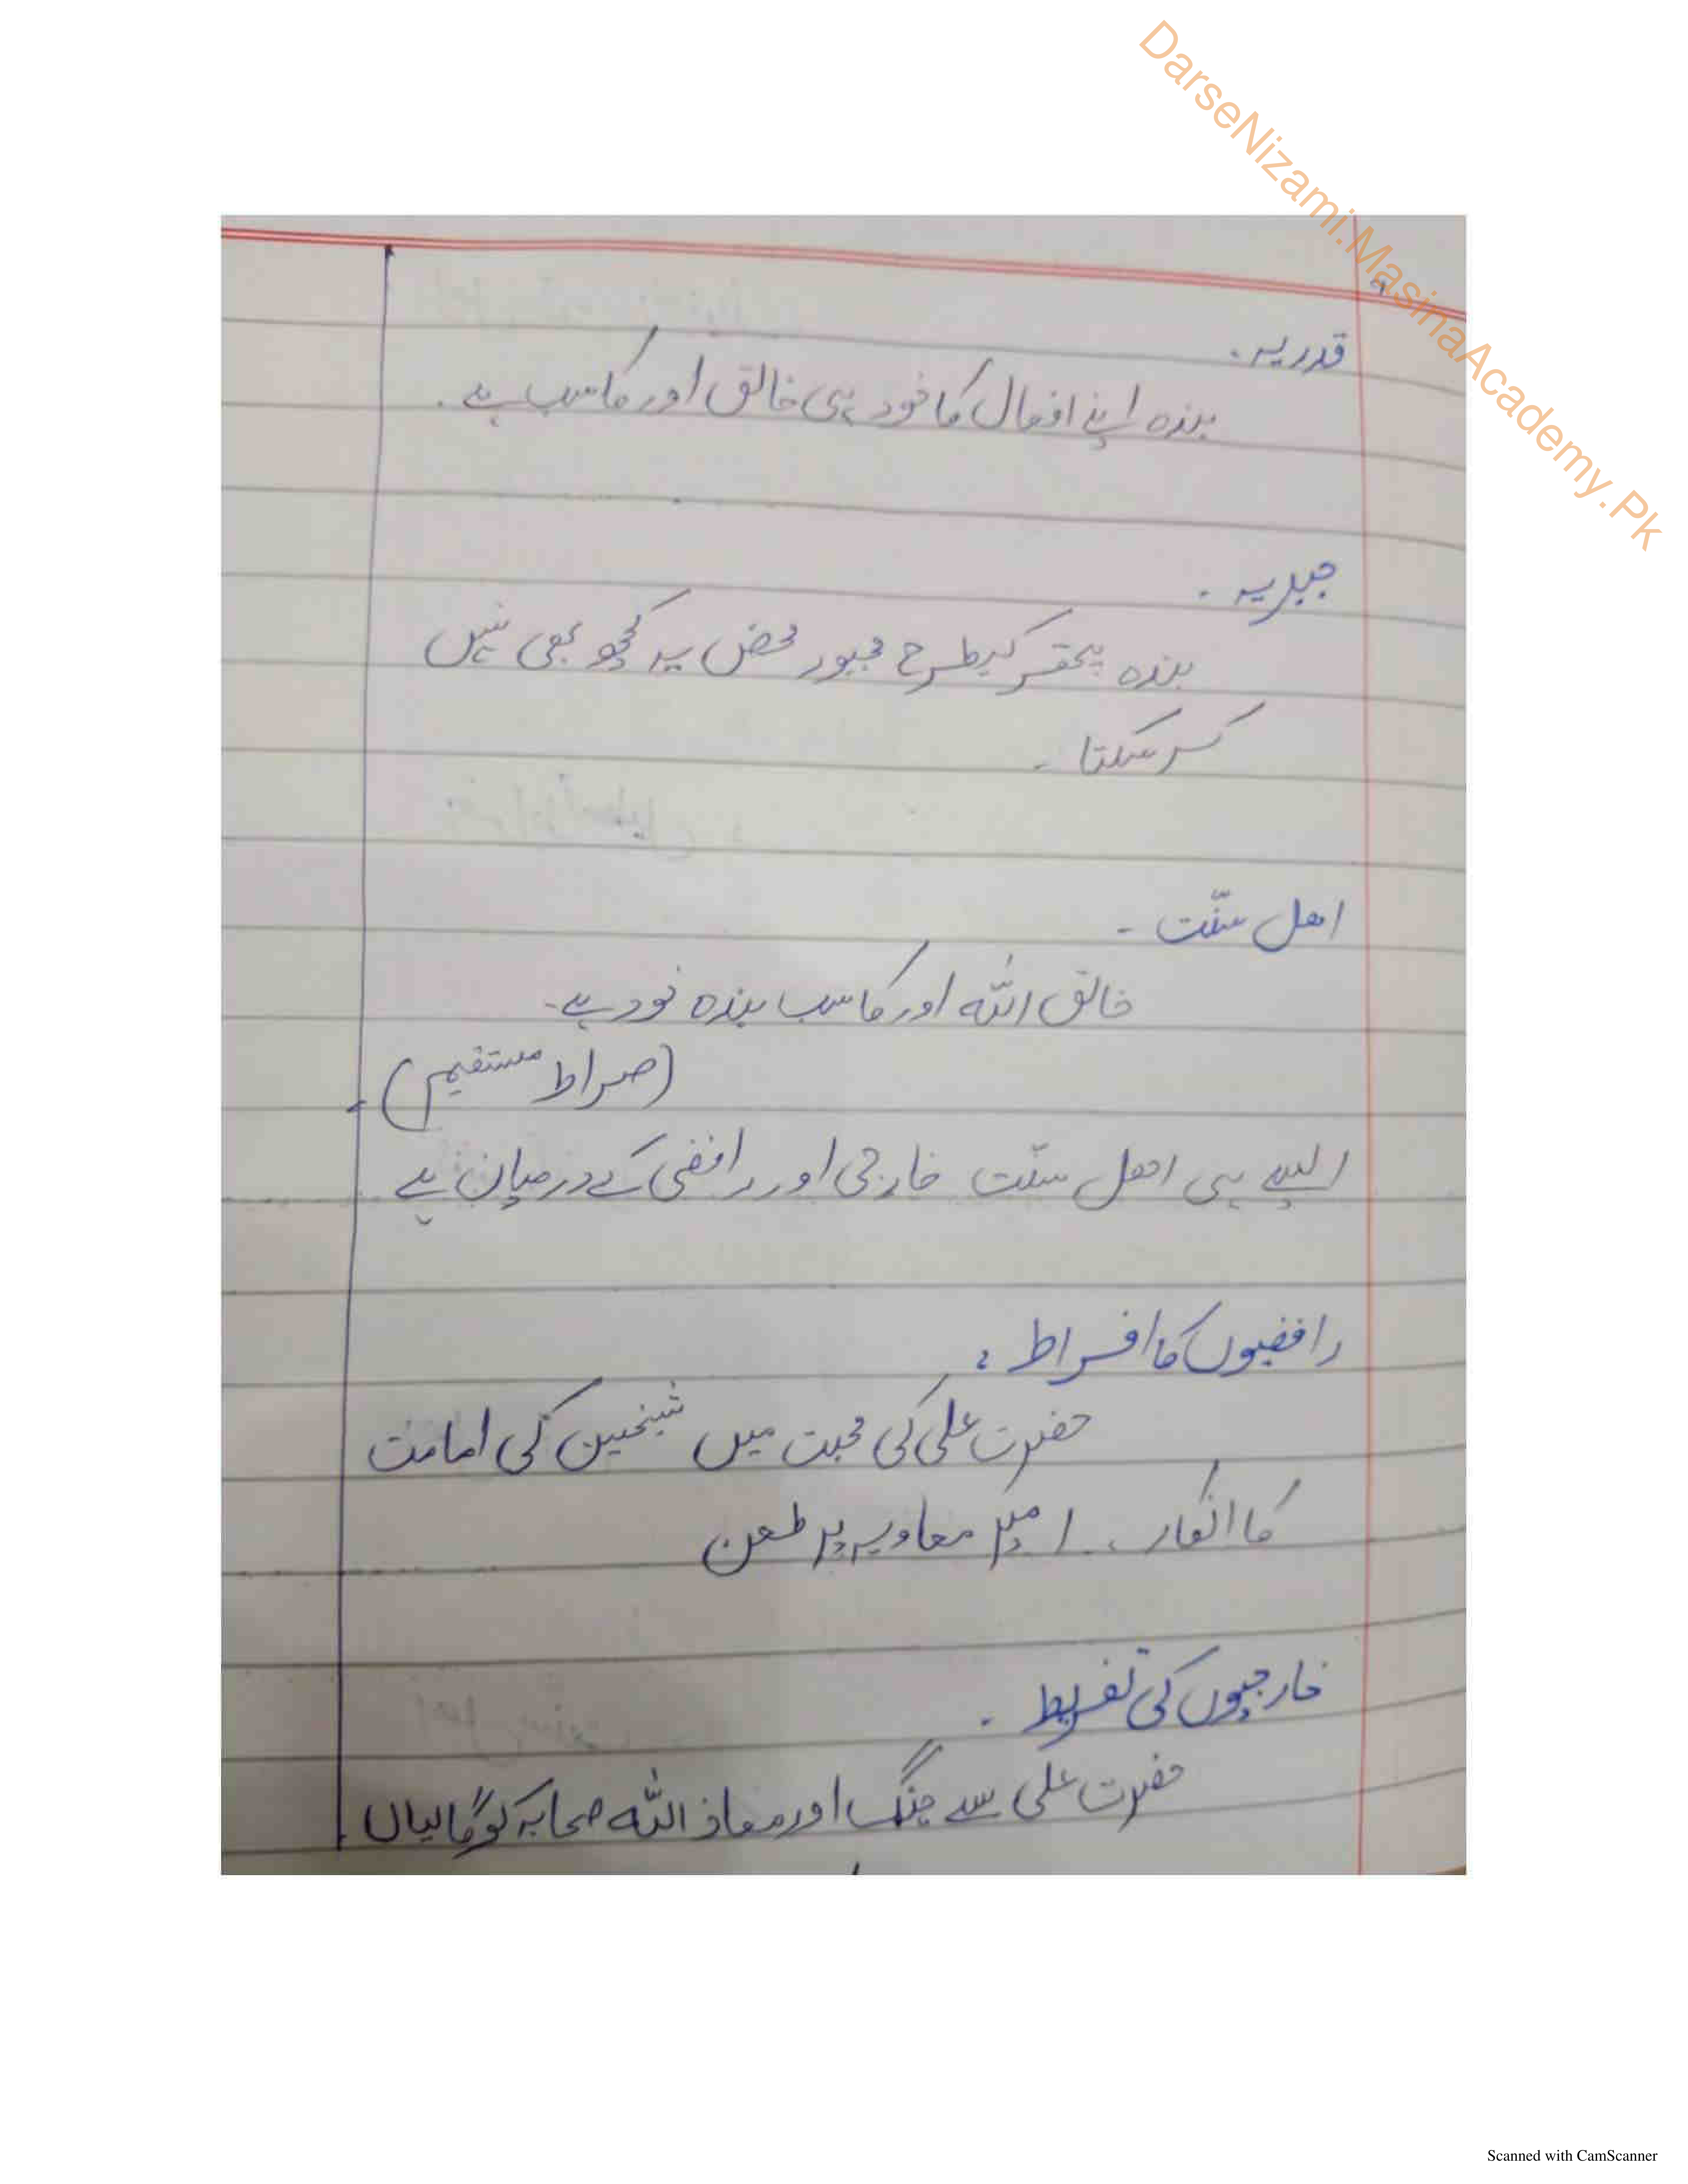 DarseNizami.MasinaAcademy.Pk
قدریہ .
بندہ اپنے افعال کا خود ہی خالق اور کاسب ہے .
جبریہ .
بندہ پتھر کیطرح مجبور محض ہے کچھ بھی نہیں
کر سکتا ۔
اھل سنّت ۔
خالق اللّٰہ اور کاسب بندہ خود ہے۔
(صراط مستقیم)
ایسے ہی اھل سنّت خارجی اور رافضی کے درمیان ہے
رافضیوں کا افراط :
حضرت علی کی محبت میں شیخین کی امامت
کا انکار . امیر معاویہ پر طعن
خارجیوں کی تفریط .
حضرت علی سے جنگ اور معاذ اللّٰہ صحابہ کو گالیاں
Scanned with CamScanner